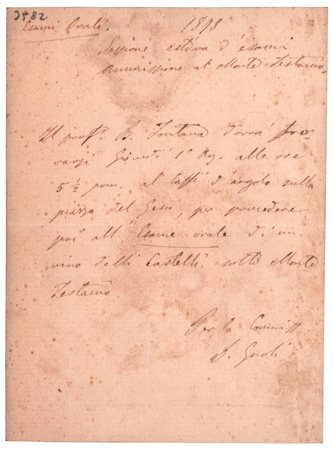 3582
Esami Orali. 1898
Sessione estiva d'esami
Ammissione al Monte Testaccio
Il prof. B. Fontana dovrà tro
varsi Giovedì 1º Ag. alle ore
5½ pom. al Caffè d'angolo sulla
piazza del Gesù, per procedere
poi all'Esame orale di un
vino delli Castelli sotto Monte
Testaccio
Per la Commiss
D. Gnoli